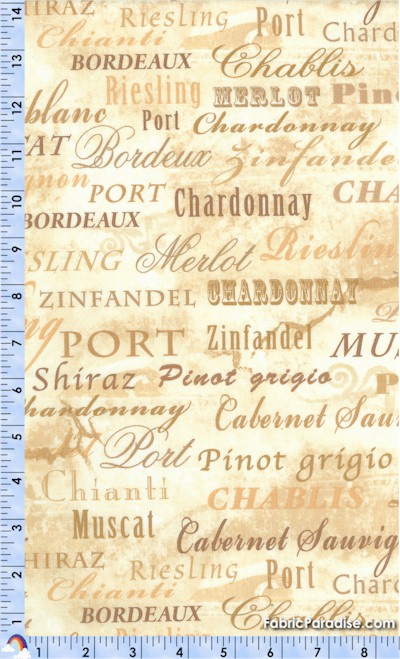 HIRAZ Riesling Port Chard
Chianti
BORDEAUX Chablis
Riesling MERLOT Pin
blanc Port Chardonnay
CAT Bordeaux Zinfande
gnon PORT Chardonnay CHA
BORDEAUX
SLING Merlot Riesling
ZINFANDEL CHARDONNAY
PORT Zinfandel MUS
Shiraz Pinot grigio P
hardonnay Cabernet Sauv
Port Pinot grigio
Chianti CHABLIS
Muscat Cabernet Sauvig
HIRAZ Riesling Port Chard
Chianti
BORDEAUX Chablis
Riesling
FabricParadise.com
14
13
12
11
10
9
8
7
6
5
4
3
2
1
1 2 3 4 5 6 7 8